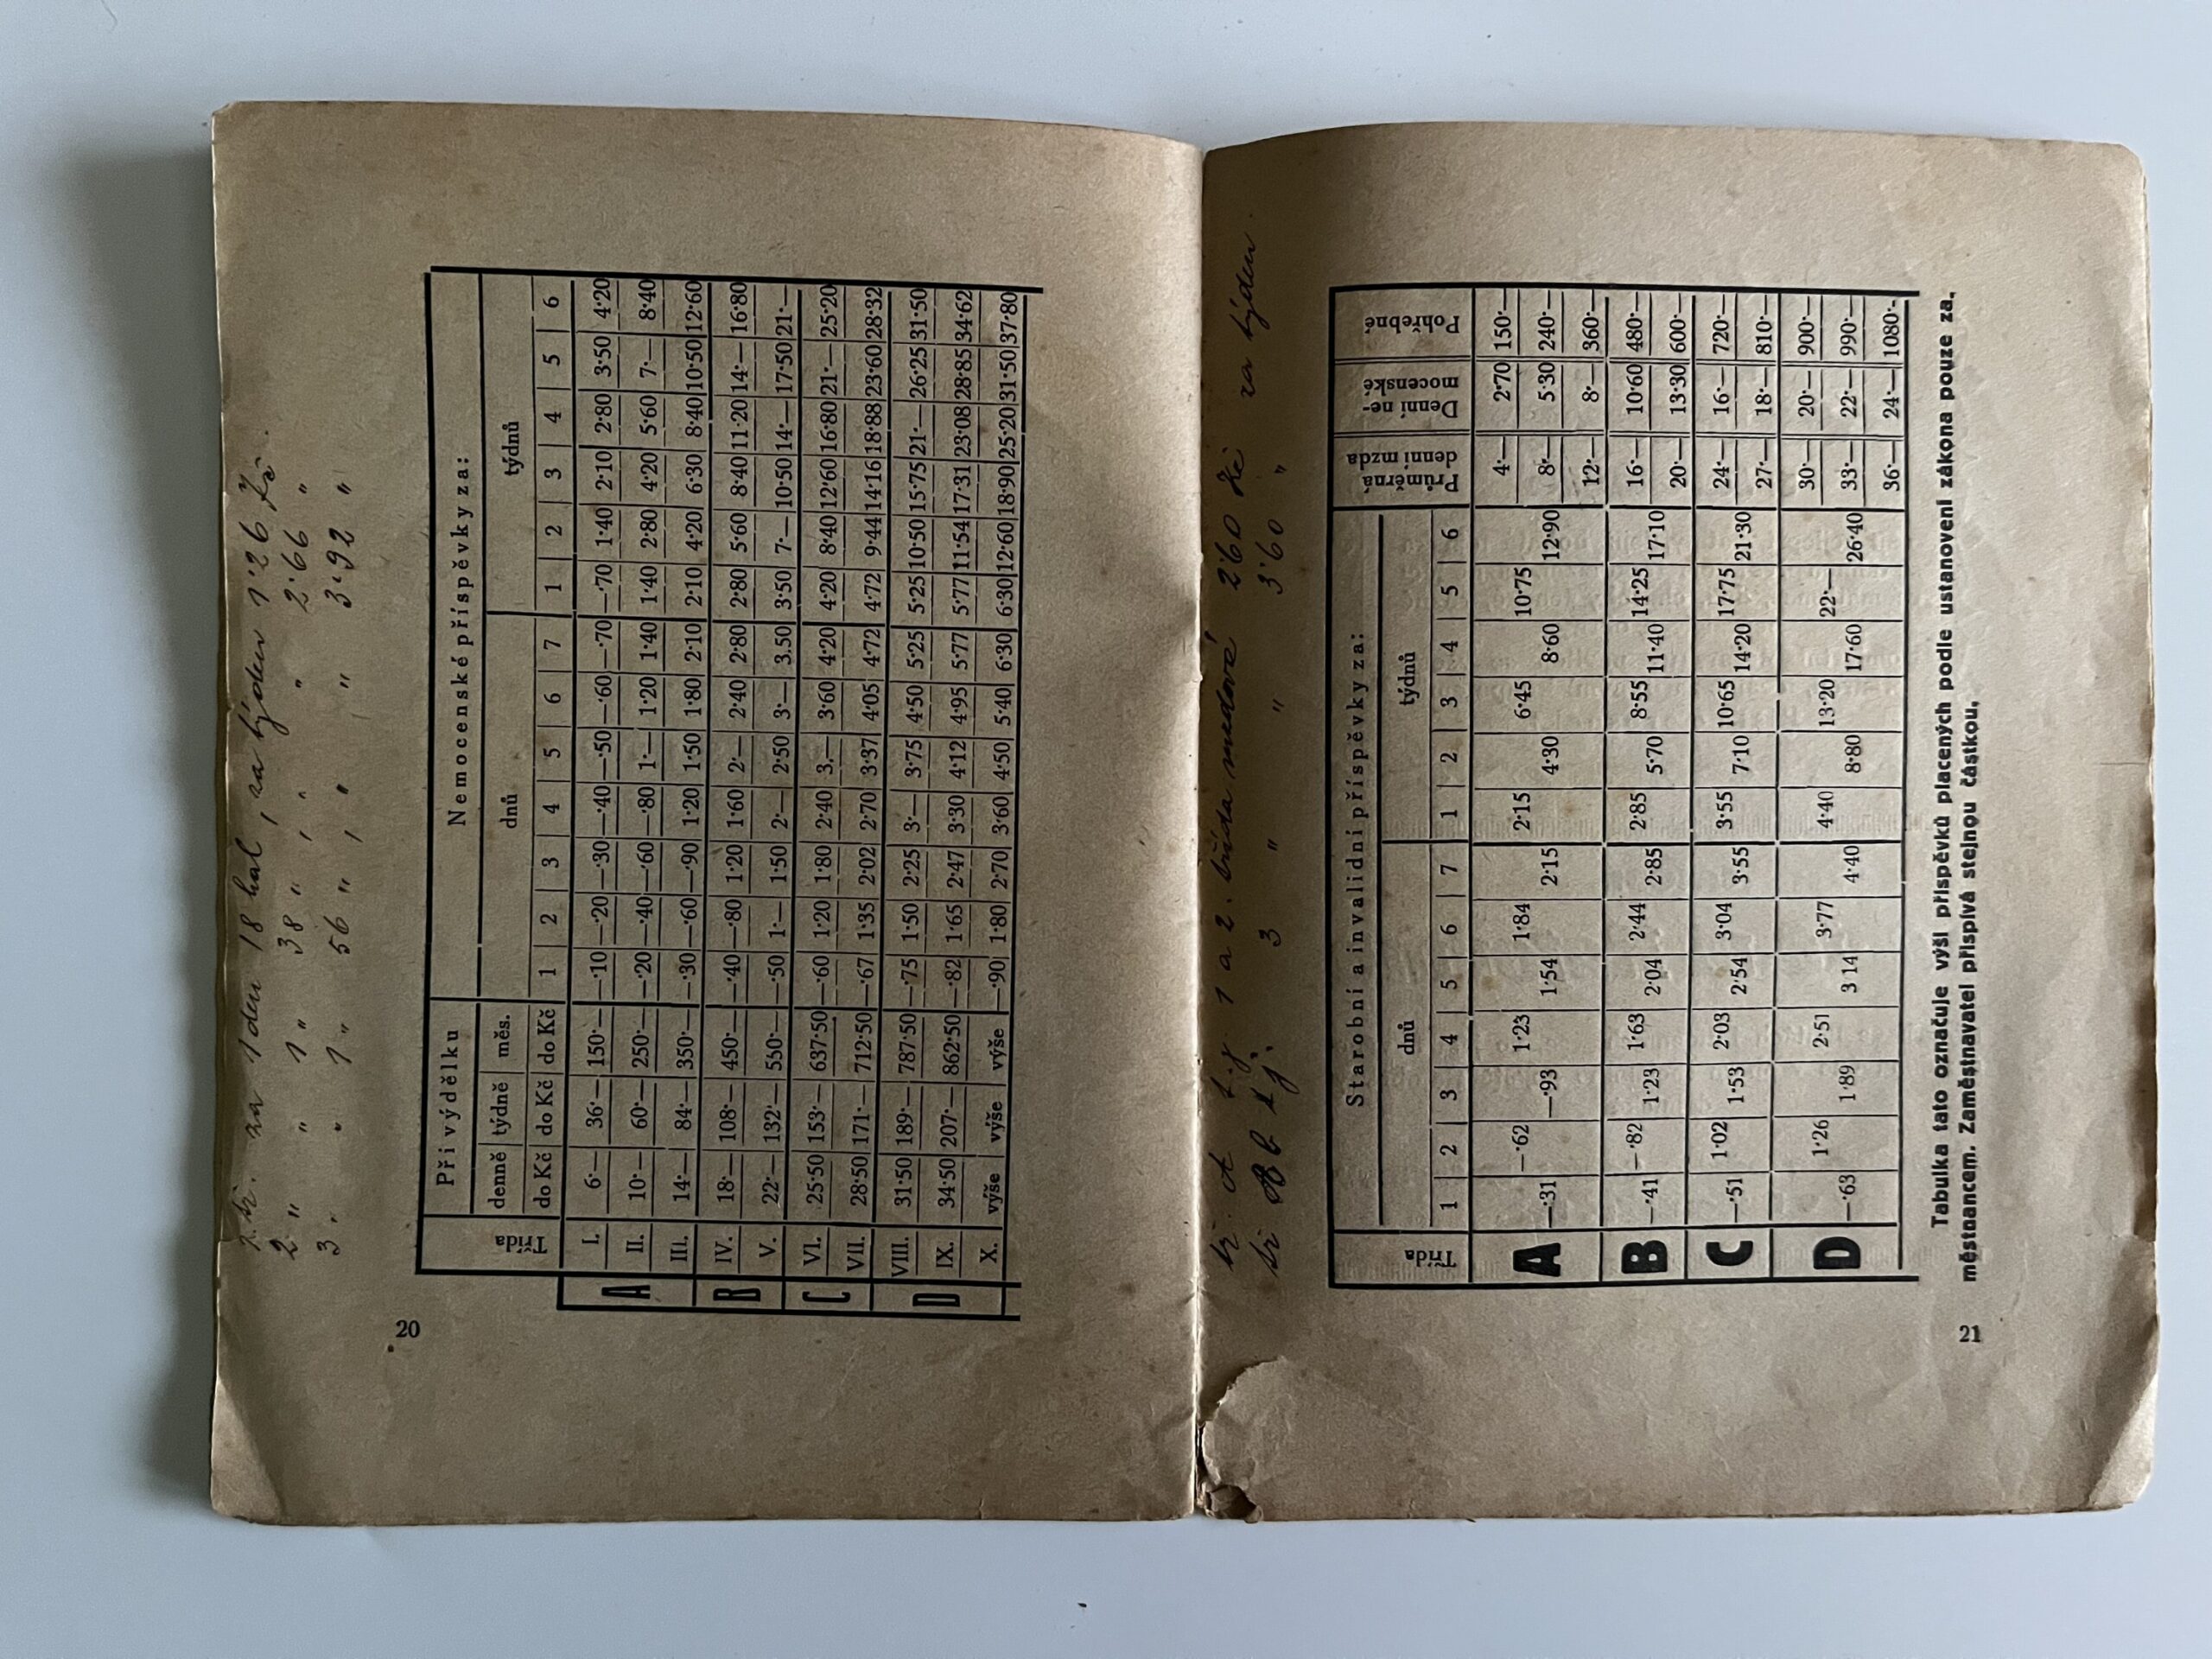 I. tř. za 1 den 18 hal, za týden 1·26 Kč.
2. " " 1 " 38 " , " " 2·66 "
3. " 1 " 56 " , " " 3·92 "
20
Třída Při výdělku Nemocenské příspěvky za:
denně týdně měs. dnů týdnů
do Kč do Kč do Kč 1 2 3 4 5 6 7 1 2 3 4 5 6
A I. 6·— 36·— 150·— —·10 —·20 —·30 —·40 —·50 —·60 —·70 —·70 1·40 2·10 2·80 3·50 4·20
II. 10·— 60·— 250·— —·20 —·40 —·60 —·80 1·— 1·20 1·40 1·40 2·80 4·20 5·60 7·— 8·40
III. 14·— 84·— 350·— —·30 —·60 —·90 1·20 1·50 1·80 2·10 2·10 4·20 6·30 8·40 10·50 12·60
B IV. 18·— 108·— 450·— —·40 —·80 1·20 1·60 2·— 2·40 2·80 2·80 5·60 8·40 11·20 14·— 16·80
V. 22·— 132·— 550·— —·50 1·— 1·50 2·— 2·50 3·— 3.50 3·50 7·— 10·50 14·— 17·50 21·—
C VI. 25·50 153·— 637·50 —·60 1·20 1·80 2·40 3.— 3·60 4·20 4·20 8·40 12·60 16·80 21·— 25·20
VII. 28·50 171·— 712·50 —·67 1·35 2·02 2·70 3·37 4·05 4·72 4·72 9·44 14·16 18·88 23·60 28·32
D VIII. 31·50 189·— 787·50 —·75 1·50 2·25 3·— 3·75 4·50 5·25 5·25 10·50 15·75 21·— 26·25 31·50
IX. 34·50 207·— 862·50 —·82 1·65 2·47 3·30 4·12 4·95 5·77 5·77 11·54 17·31 23·08 28·85 34·62
X. výše výše výše —·90 1·80 2·70 3·60 4·50 5·40 6·30 6·30 12·60 18·90 25·20 31·50 37·80
tř. A t.j. 1 a 2. třída mzdová 2·60 Kč za týden.
tř. Bb t.j. 3 " " 3·60 " "
Třída Starobní a invalidní příspěvky za: Průměrná denní mzda Denní nemocenské Pohřebné
dnů týdnů
1 2 3 4 5 6 7 1 2 3 4 5 6
A —·31 —·62 —·93 1·23 1·54 1·84 2·15 2·15 4·30 6·45 8·60 10·75 12·90 4·— 2·70 150·—
8·— 5·30 240·—
12·— 8·— 360·—
B —·41 —·82 1·23 1·63 2·04 2·44 2·85 2·85 5·70 8·55 11·40 14·25 17·10 16·— 10·60 480·—
20·— 13·30 600·—
C —·51 1·02 1·53 2·03 2·54 3·04 3·55 3·55 7·10 10·65 14·20 17·75 21·30 24·— 16·— 720·—
27·— 18·— 810·—
D —·63 1·26 1·89 2·51 3 14 3·77 4·40 4·40 8·80 13·20 17·60 22·— 26·40 30·— 20·— 900·—
33·— 22·— 990·—
36·— 24·— 1080·-
Tabulka tato označuje výši příspěvků placených podle ustanovení zákona pouze za-
městnancem. Zaměstnavatel přispívá stejnou částkou.
21